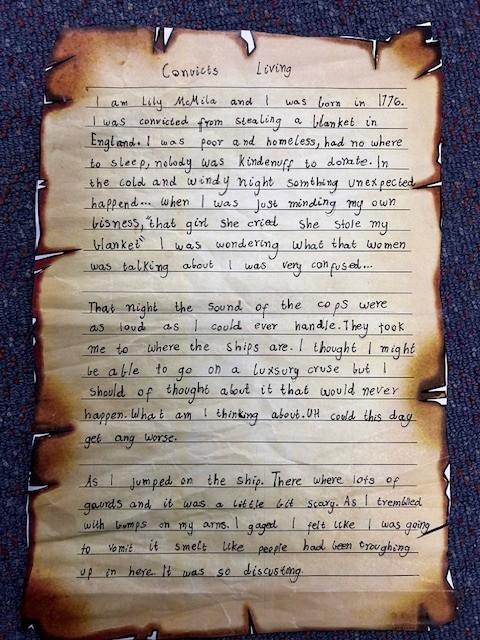 Convicts Living
I am Lily McMila and I was born in 1776.
I was convicted from stealing a blanket in
England. I was poor and homeless, had no where
to sleep, nobody was kindenuff to donate. In
the cold and windy night somthing unexpected
happend... when I was just minding my own
bisness, "that girl she cried she stole my
blanket" I was wondering what that women
was talking about I was very confused...
That night the sound of the cops were
as loud as I could ever handle. They took
me to where the ships are. I thought I might
be able to go on a luxsury cruse but I
should of thought about it that would never
happen. What am I thinking about. UH could this day
get any worse.
As I jumped on the ship. There where lots of
gaurds and it was a little bit scary. As I trembled
with bumps on my arms. I gaged I felt like I was going
to vomit it smelt like people had been troughing
up in here. It was so discusting.